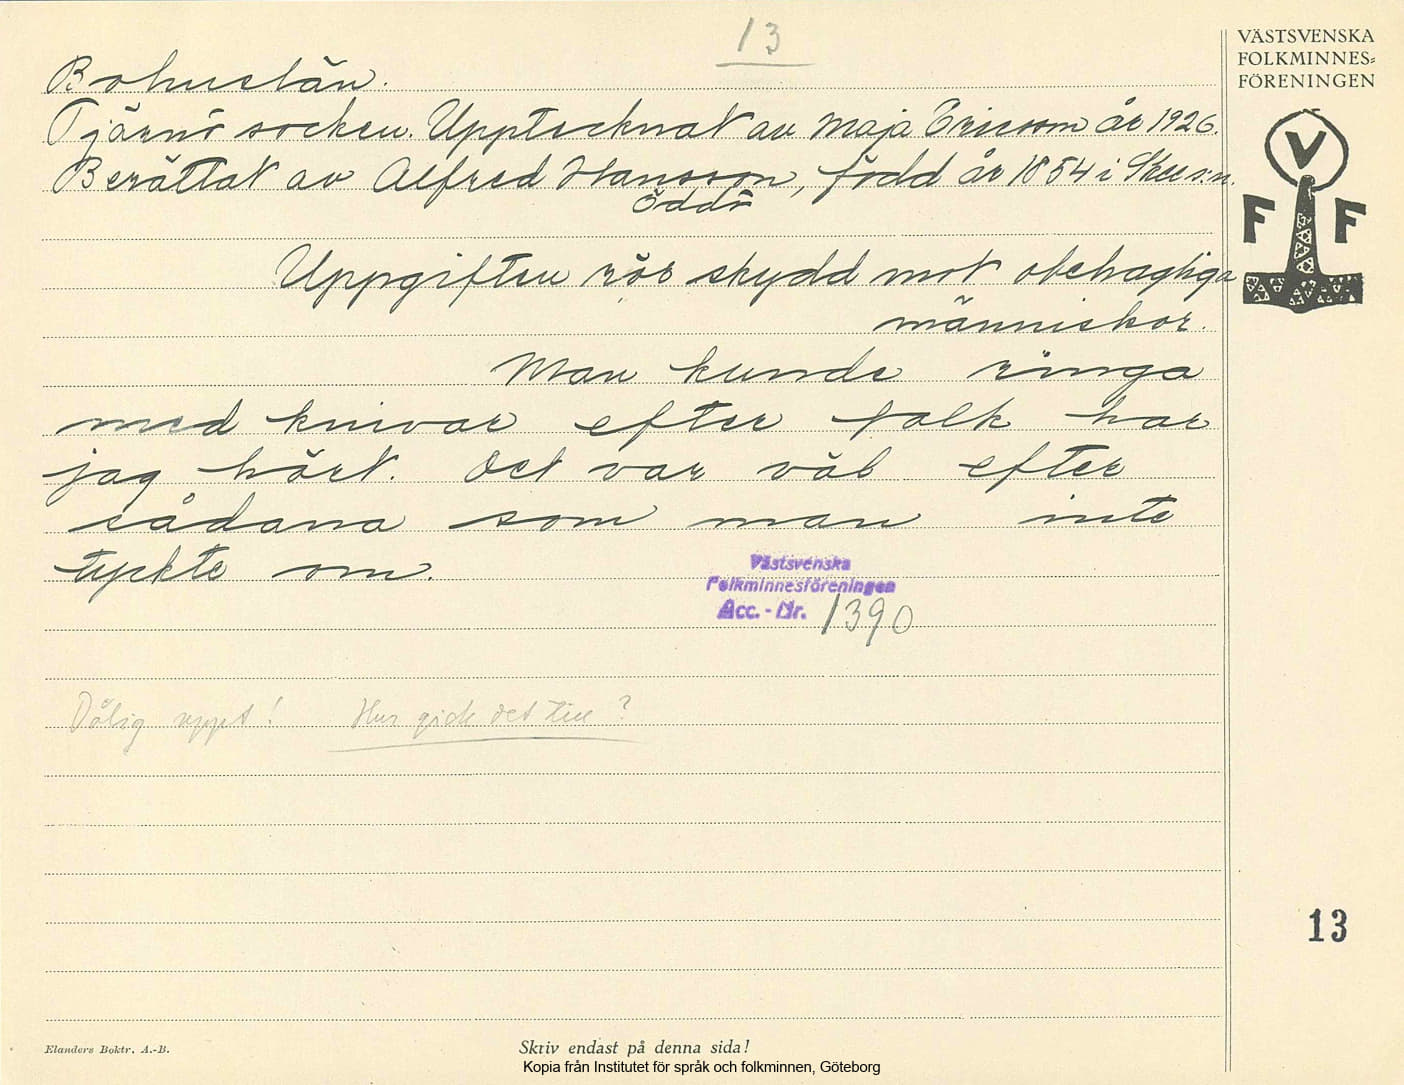 13
VÄSTSVENSKA
FOLKMINNES=
FÖRENINGEN
V
F F
Bohuslän.
Tjärnö socken. Upptecknat av Maja Ericson år 1926.
Berättat av Alfred Hansson, född år 1854 i Skee s:n.
Öddö
Uppgiften rör skydd mot obehagliga
människor.
Man kunde ringa
med knivar efter folk har
jag hört. Det var väl efter
sådana som man inte
tyckte om.
Västsvenska
Folkminnesföreningen
Acc. - Nr. 1390
Dålig uppt! Hur gick det till?
13
Elanders Boktr. A.-B.
Skriv endast på denna sida!
Kopia från Institutet för språk och folkminnen, Göteborg